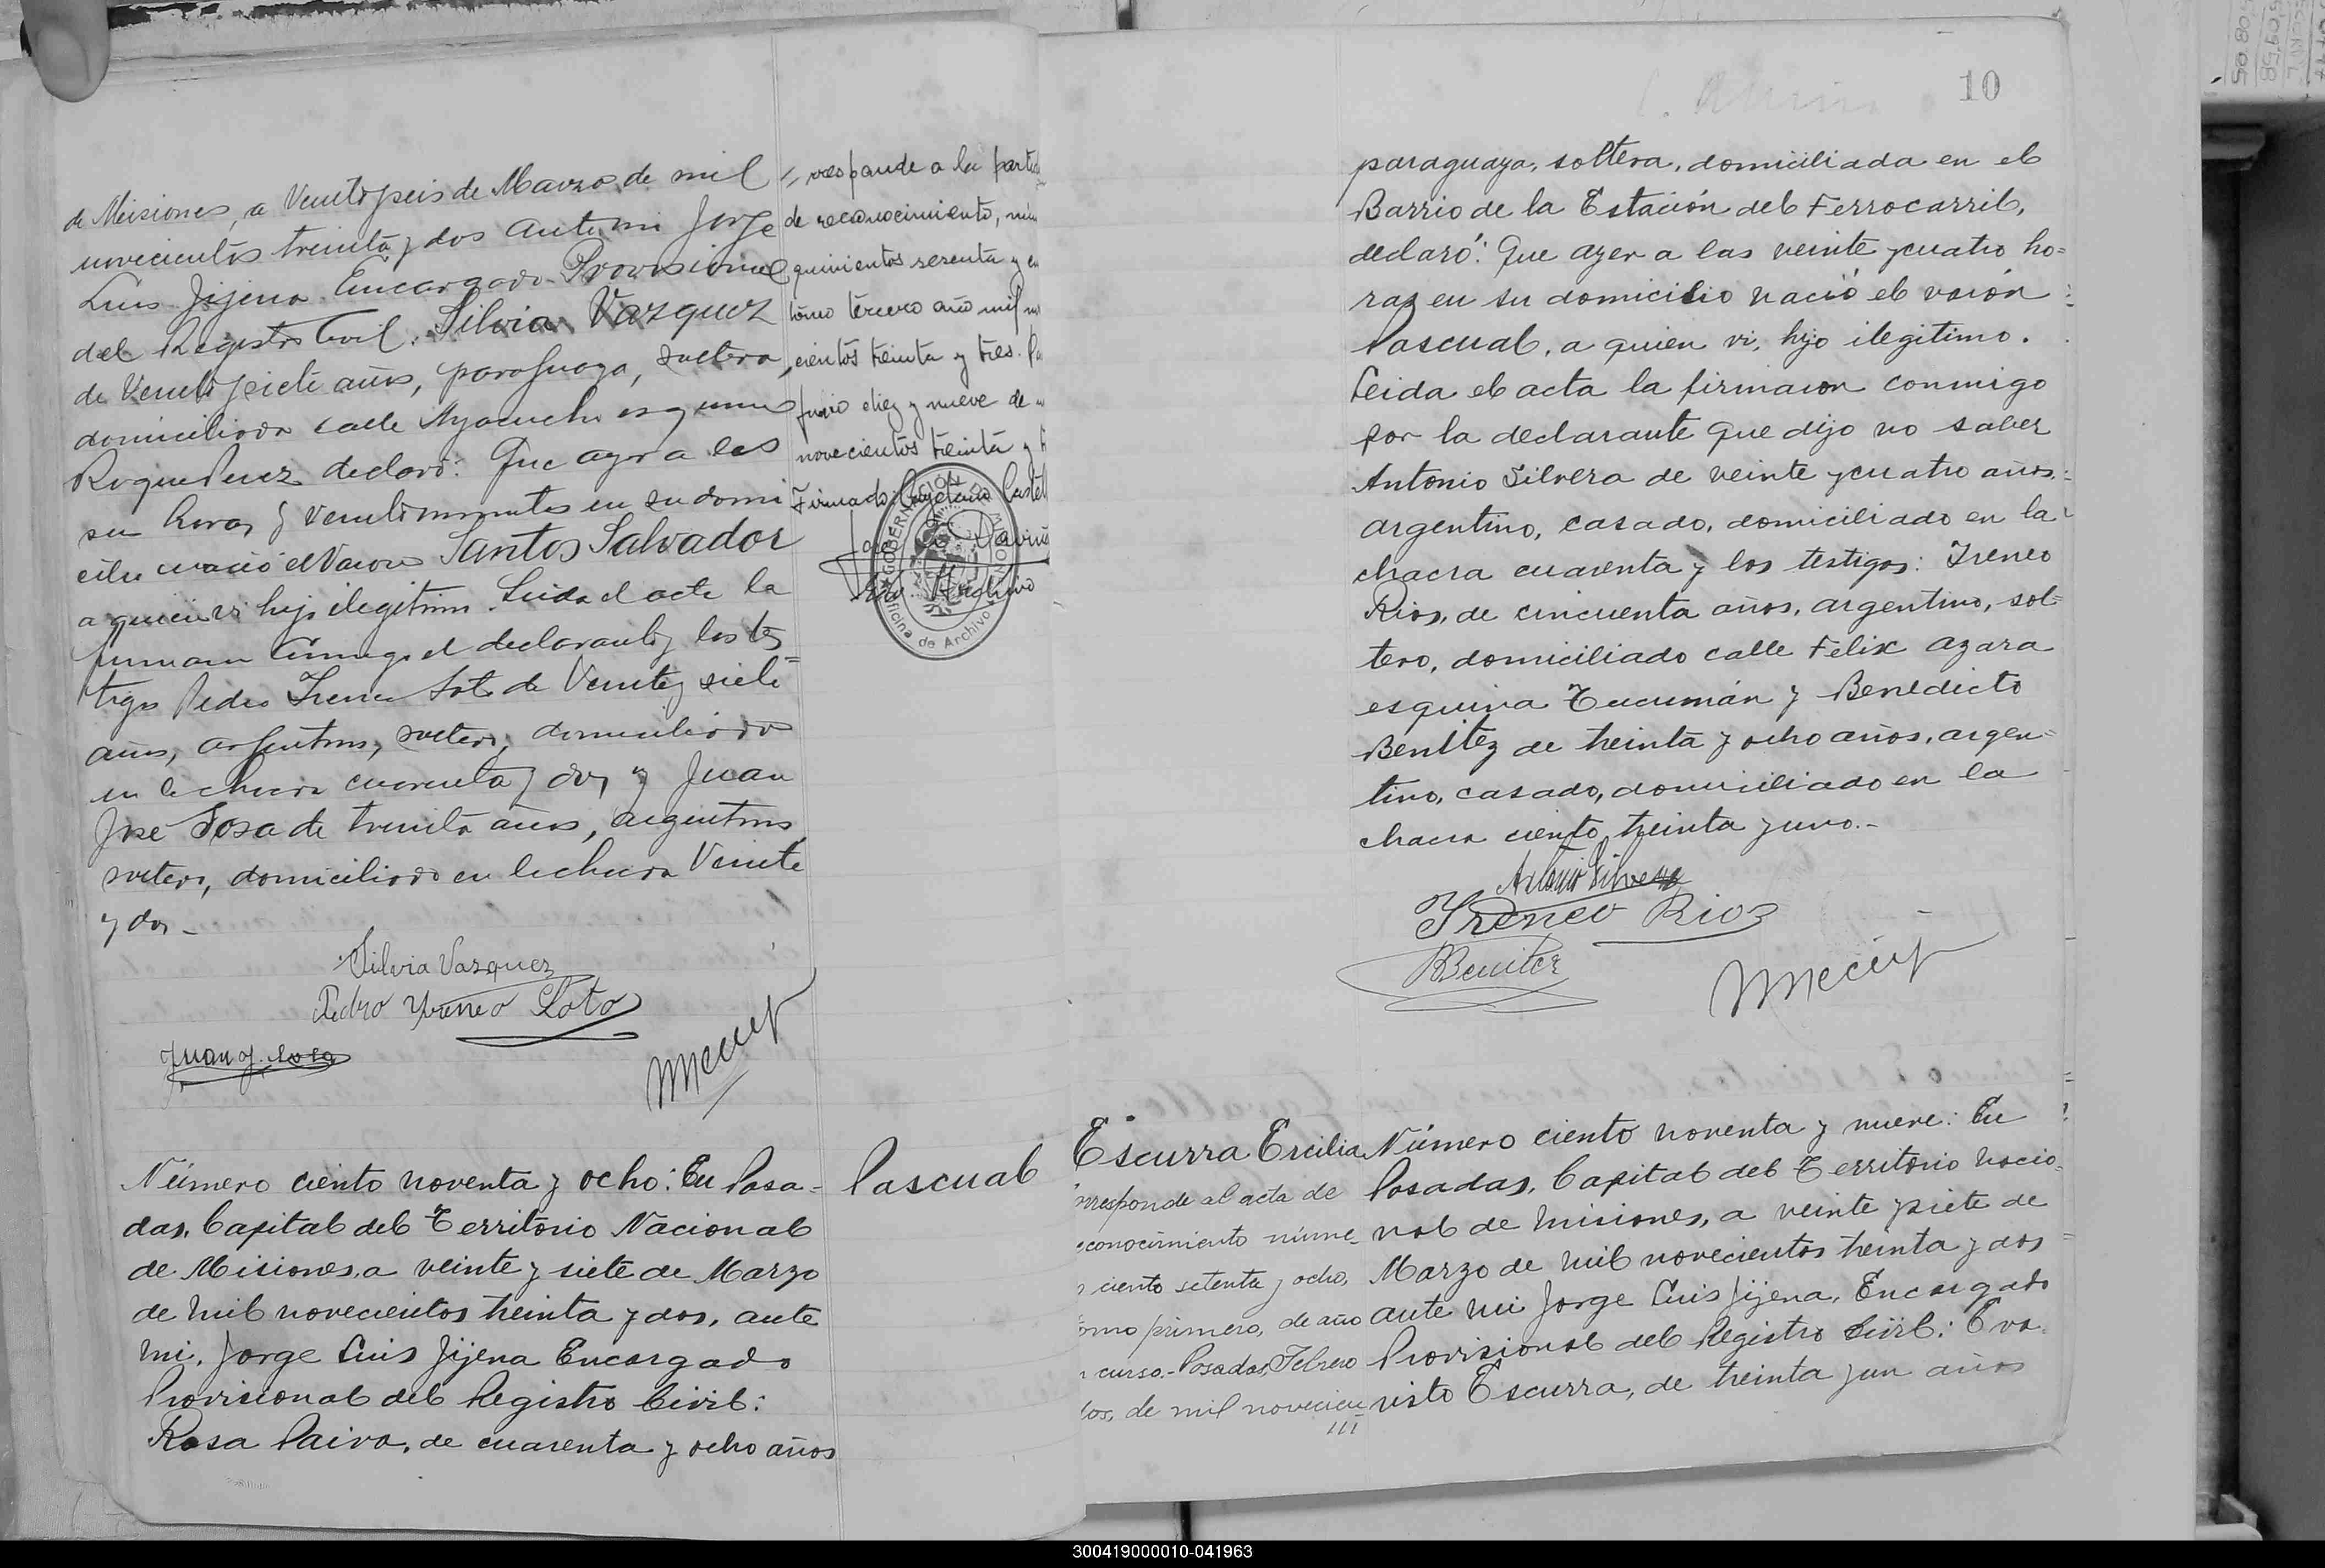 de Misiones, a Veintiseis de Marzo de mil
novecientos treinta y dos ante mi Jorge
Luis Jijena Encargado Provisional
del Registro Civil: Silvia Vazquez
de Veintisiete años, paraguaya, soltera,
domiciliada calle Ayacucho esquina
Roque Perez declaró: Que ayer a las
seis horas y veinte minutos en su domi
cilio nació el Varon Santos Salvador
a quien vi hijo ilegitimo. Leida el acta la
firmaron conmigo el declarante y los tes
tigos Pedro Ireneo Soto de Veinte y siete
años, argentino, soltero, domiciliado
en la chacra cuarenta y dos y Juan
José Sosa de treinta años, argentino
soltero, domiciliado en la chacra Veinte
y dos -
Silvia Vazquez
Pedro Yreneo Soto
Juan J. Sosa
responde a la partida
de reconocimiento, núm
quinientos sesenta y
tomo tercero año mil
cientos treinta y tres.
junio diez y nueve de
novecientos treinta y
Firmado: Cayetano Castel
GOBERNACIÓN DE MISIONES
Oficina de Archivo
Número ciento noventa y ocho: En Posa-
das, Capital del Territorio Nacional
de Misiones, a veinte y siete de Marzo
de mil novecientos treinta y dos, ante
mi, Jorge Luis Jijena Encargado
Provisional del Registro Civil:
Rosa Paiva, de cuarenta y ocho años
Pascual
10
paraguaya, soltera, domiciliada en el
Barrio de la Estación del Ferrocarril,
declaró: Que ayer a las veinte y cuatro ho=
ras en su domicilio nació el varón
Pascual, a quien vi, hijo ilegitimo.
Leida el acta la firmaron conmigo
por la declarante que dijo no saber
Antonio Silvera de veinte y cuatro años,
argentino, casado, domiciliado en la
chacra cuarenta y los testigos: Ireneo
Rios, de cincuenta años, argentino, sol=
tero, domiciliado calle Felix Azara
esquina Tucumán y Benedicto
Benitez de treinta y ocho años, argen=
tino, casado, domiciliado en la
chacra ciento treinta y uno.-
Antonio Silvera
Ireneo Rios
BBenitez
Escurra Ercilia
rresponde al acta de
econocimiento núme-
ciento setenta y ocho,
omo primero, de año
curso.- Posadas, Febrero
dos, de mil novecien
///
Número ciento noventa y nueve: En
Posadas, Capital del Territorio Nacio-
nal de Misiones, a veinte y siete de
Marzo de mil novecientos treinta y dos
ante mi Jorge Luis Jijena, Encargado
Provisional del Registro Civil: Eva-
risto Escurra, de treinta y un años
300419000010-041963